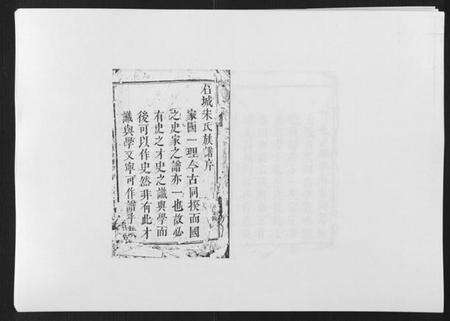 石城朱氏族譜序
家國一理今古同揆而國
之史家之譜亦一也故必
有史之才史之識與學而
後可以作史然非有此才
識與學又寧可作譜乎